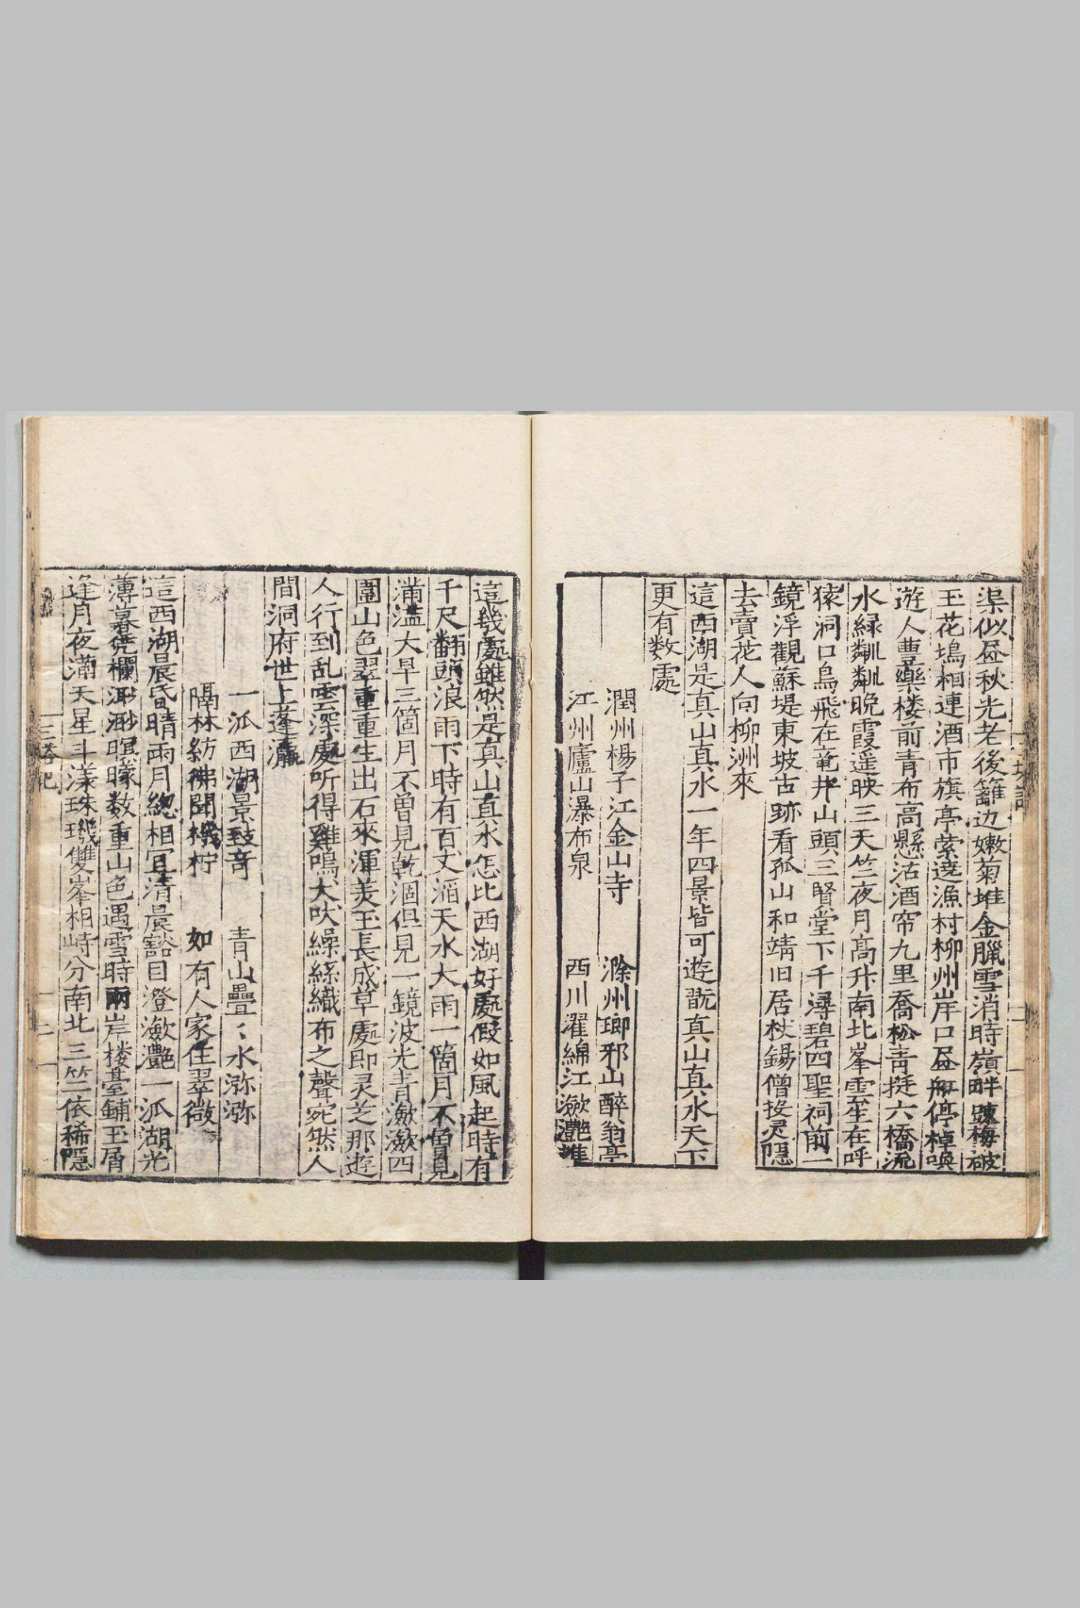 渠似昼秋光老後籬边嫩菊堆金臘雪消時嶺畔踈梅破
玉花塢相連酒市旗亭縈遶漁村柳州岸口昼舡停棹喚
遊人豊樂楼前青布高懸沽酒帘九里喬松青挺六橋流
水緑粼粼晚霞遥映三天竺夜月髙升南北峯雲生在呼
猿洞口鳥飛在竜井山頭三賢堂下千潯碧四聖祠前一
鏡浮觀蘇堤東坡古跡看孤山和靖旧居杖錫僧投灵隠
去賣花人向柳洲來
這西湖是真山真水一年四景皆可遊翫真山真水天下
更有数處
潤州楊子江金山寺 滁州瑯邪山醉翁亭
江州廬山瀑布泉 西川濯綿江瀲灔堆
這幾處雖然是真山真水怎比西湖好處假如風起時有
千尺翻頭浪雨下時有百丈滔天水大雨一箇月不曽見
滿溢大旱三箇月不曽見乾涸但見一鏡波光青瀲瀲四
圍山色翠重重生出石來渾美玉長成草處即灵芝那遊
人行到乱雲深處听得雞鳴犬吠繰絲織布之聲宛然人
間洞府世上蓬瀛
一派西湖景致竒 青山疊〻水瀰瀰
隔林彷彿聞機杼 如有人家住翠微
這西湖晨昏晴雨月緫相宜清晨豁目澄瀲灔一派湖光
薄暮凭欄渺渺暝朦数重山色遇雪時兩岸楼臺鋪玉屑
逢月夜滿天星斗漾珠璣雙峯相峙分南北三竺依稀隠
三塔記
二